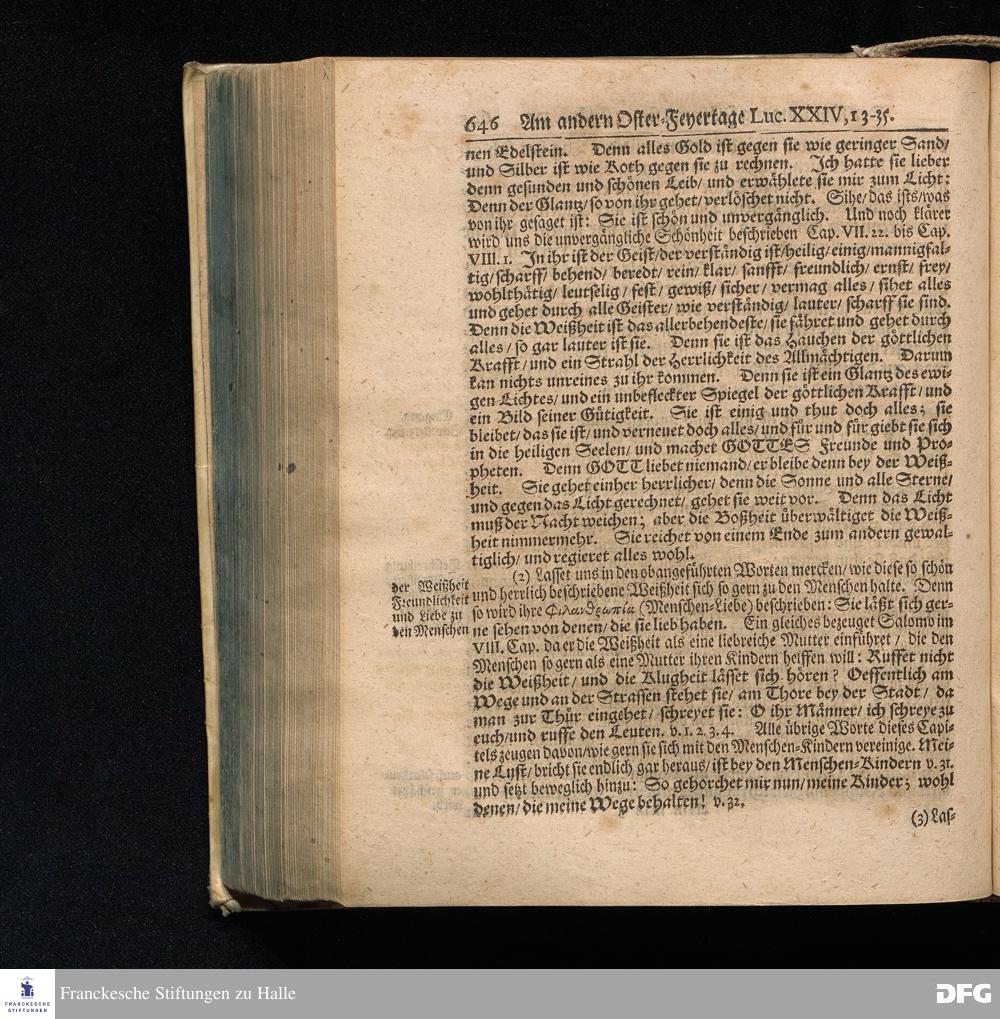 646 Am andern Oster-Feyertage Luc. XXIV, 13-35.
nen Edelstein. Denn alles Gold ist gegen sie wie geringer Sand/
und Silber ist wie Koth gegen sie zu rechnen. Ich hatte sie lieber
denn gesunden und schönen Leib/ und erwählete sie mir zum Licht:
Denn der Glantz/ so von ihr gehet/ verlöschet nicht. Sihe/ das ists/ was
von ihr gesaget ist: Sie ist schön und unvergänglich. Und noch klärer
wird uns die unvergängliche Schönheit beschrieben Cap. VII. 22. bis Cap.
VIII. 1. In ihr ist der Geist/ der verständig ist/ heilig/ einig/ mannigfal-
tig/ scharff/ behend/ beredt/ rein/ klar/ sanfft/ freundlich/ ernst/ frey/
wohlthätig/ leutselig/ fest/ gewiß/ sicher/ vermag alles/ sihet alles
und gehet durch alle Geister/ wie verständig/ lauter/ scharff sie sind.
Denn die Weißheit ist das allerbehendeste/ sie fähret und gehet durch
alles/ so gar lauter ist sie. Denn sie ist das Hauchen der göttlichen
Krafft/ und ein Strahl der Herrlichkeit des Allmächtigen. Darum
kan nichts unreines zu ihr kommen. Denn sie ist ein Glantz des ewi-
gen Lichtes/ und ein unbefleckter Spiegel der göttlichen Krafft/ und
ein Bild seiner Gütigkeit. Sie ist einig und thut doch alles; sie
bleibet/ das sie ist/ und verneuet doch alles/ und für und für giebt sie sich
in die heiligen Seelen/ und machet GOTTES Freunde und Pro-
pheten. Denn GOTT liebet niemand/ er bleibe denn bey der Weiß-
heit. Sie gehet einher herrlicher/ denn die Sonne und alle Sterne/
und gegen das Licht gerechnet/ gehet sie weit vor. Denn das Licht
muß der Nacht weichen; aber die Boßheit überwältiget die Weiß-
heit nimmermehr. Sie reichet von einem Ende zum andern gewal-
tiglich/ und regieret alles wohl.
der Weißheit
Freundlichkeit
und Liebe zu
den Menschen
(2) Lasset uns in den obangeführten Worten mercken/ wie diese so schön
und herrlich beschriebene Weißheit sich so gern zu den Menschen halte. Denn
so wird ihre Φιλανθρωπία (Menschen-Liebe) beschrieben: Sie läßt sich ger-
ne sehen von denen/ die sie lieb haben. Ein gleiches bezeuget Salomo im
VIII. Cap. da er die Weißheit als eine liebreiche Mutter einführet/ die den
Menschen so gern als eine Mutter ihren Kindern helffen will: Ruffet nicht
die Weißheit/ und die Klugheit lässet sich hören? Oeffentlich am
Wege und an der Strassen stehet sie/ am Thore bey der Stadt/ da
man zur Thür eingehet/ schreyet sie: O ihr Männer/ ich schreye zu
euch/ und ruffe den Leuten. v. 1. 2. 3. 4. Alle übrige Worte dieses Capi-
tels zeugen davon/ wie gern sie sich mit den Menschen-Kindern vereinige. Mei-
ne Lust/ bricht sie endlich gar heraus/ ist bey den Menschen-Kindern v. 31.
und setzt beweglich hinzu: So gehorchet mir nun/ meine Kinder; wohl
denen/ die meine Wege behalten! v. 32.
(3) Las-
FRANCKESCHE
STIFTUNGEN
Franckesche Stiftungen zu Halle
DFG